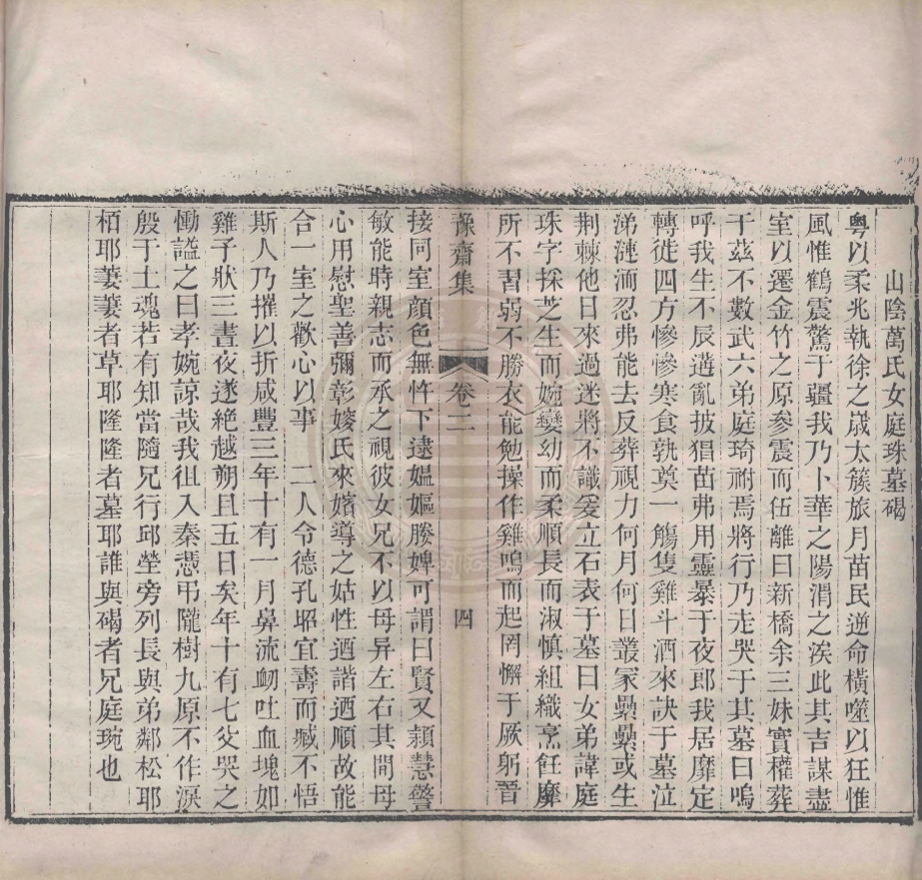 山陰萬氏女庭珠墓碣
粵以柔兆執徐之歲太簇旅月苗民逆命橫噬以狂惟
風惟鶴震驚于疆我乃卜華之陽渭之涘此其吉謀盡
室以遷金竹之原參震而伍離曰新橋余三妹實權葬
于茲不數武六弟庭琦祔焉將行乃走哭于其墓曰嗚
呼我生不辰遘亂披猖苗弗用靈暴于夜郎我居靡定
轉徙四方慘慘寒食孰奠一觴隻雞斗酒來訣于墓泣
涕漣洏忍弗能去反葬視力何月何日叢冢纍纍或生
荆棘他日來過迷將不識爰立石表于墓曰女弟諱庭
珠字採芝生而婉孌幼而柔順長而淑慎組織烹飪靡
所不習弱不勝衣能勉操作雞鳴而起罔懈于厥躬晉
豫齋集
卷二
四
接同室顔色無忤下逮媼嫗媵婢可謂曰賢又顈慧警
敏能時親志而承之視彼女兄不以母异左右其閒母
心用慰聖善彌彰婈氏來嬪導之姑性迺諧迺順故能
合一室之歡心以事 二人令德孔昭宜壽而臧不悟
斯人乃摧以折咸豐三年十有一月鼻流衂吐血塊如
雞子狀三晝夜遂絶越朔且五日矣年十有七父哭之
慟謚之曰孝婉諒哉我徂入秦憑弔隴樹九原不作淚
殷于土魂若有知當隨兄行邱塋旁列長與弟鄰松耶
栢耶萋萋者草耶隆隆者墓耶誰與碣者兄庭琬也